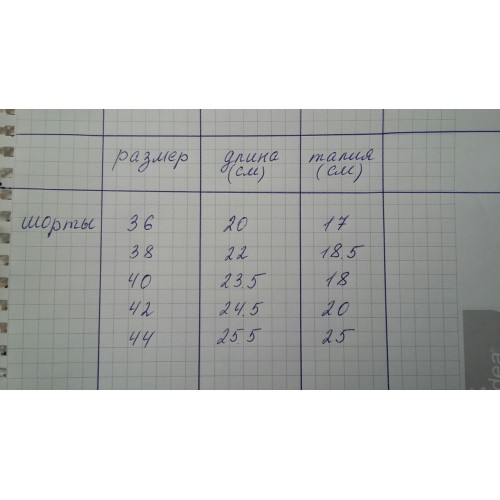 размер длина талия
(см) (см)
шорты 36 20 17
38 22 18.5
40 23.5 18
42 24.5 20
44 25.5 25